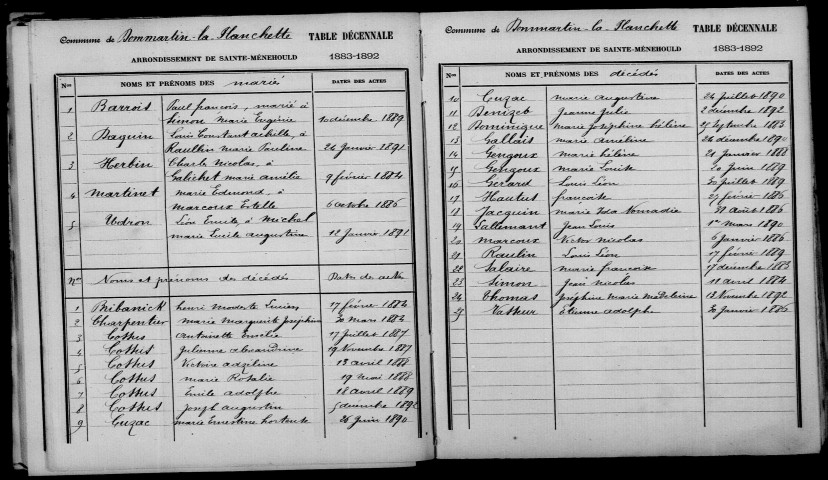 Commune de Dommartin-la-Planchette TABLE DÉCENNALE
ARRONDISSEMENT DE SAINTE-MÉNEHOULD 1883-1892
Nos NOMS ET PRÉNOMS DES mariés DATES DES ACTES
1 Barrois Paul françois, marié à
Simon Marie Eugénie 10 décembre 1889
2 Daquin Louis Constant achille, à
Raullin Marie Pauline 26 Janvier 1891
3 Herbin Charles Nicolas, à
Galichet marie amélie 9 février 1884
4 Martinet Marie Edmond, à
Marcoux Estelle 6 octobre 1886
5 Udron Léon Emile à Michel
marie Lucile augustine 12 Janvier 1891
Nos Noms et prénoms des décédés Dates des actes
1 Bribanick henri Modeste Lucien 17 février 1884
2 Charpentier Marie Marguerite Joséphine 30 mars 1884
3 Cothus antoinette Emélie 17 Juillet 1887
4 Cothus Julienne alexandrine 19 Novembre 1887
5 Cothus Victoire adzéline 13 avril 1888
6 Cothus marie Rosalie 19 mai 1888
7 Cothus Emile adolphe 18 avril 1889
8 Cothus Joseph augustin 5 décembre 1892
9 Cuzac marie Ernestine hortense 26 Juin 1890
Commune de Dommartin-la-Planchette TABLE DÉCENNALE
ARRONDISSEMENT DE SAINTE-MÉNEHOULD 1883-1892
Nos NOMS ET PRÉNOMS DES décédés DATES DES ACTES
10 Cuzac marie augustine 24 Juillet 1890
11 Denizet Jeanne Julie 2 décembre 1892
12 Dominique Marie Joséphine hélène 25 Septembre 1883
13 Gallais marie améline 24 décembre 1890
14 Gengoux marie hélène 21 Janvier 1888
15 Gengoux marie Louise 20 Juin 1889
16 Gérard Louis Léon 30 Juillet 1889
17 Hautus françoise 27 février 1886
18 Jacquin marie Ida Nomadie 31 Août 1886
19 Lallemant Jean Louis 1er mars 1890
20 Marcoux Victor Nicolas 6 Janvier 1886
21 Raulin Louis Léon 17 février 1889
22 Salaire marie françoise 17 décembre 1883
23 Simon Jean Nicolas 11 avril 1884
24 Thomas Joséphine Marie Madeleine 13 Novembre 1892
25 Etienne adolphe 30 Janvier 1886